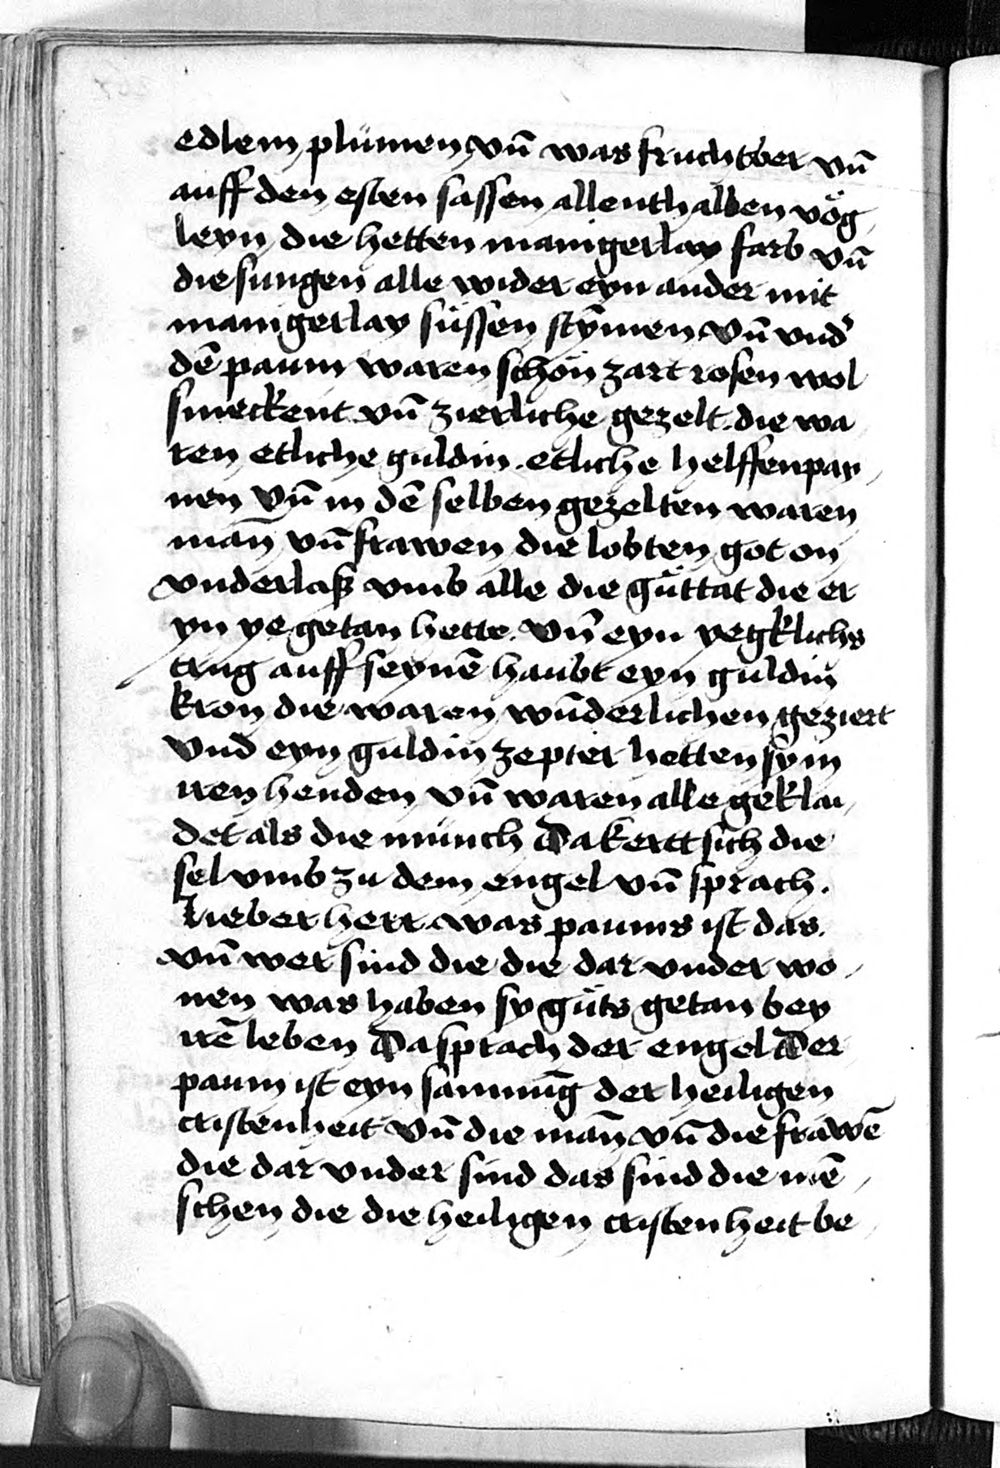 edlem plümen vn̄ was fruchtber vn̄
auff den esten sassen allenthalben vög
leyn die hetten manigerlay farb vn̄
die sungen alle wider eyn ander mit
manigerlay süssen stȳmen vn̄ vnd'
dē paum waren schön zart rosen wol
smeckent vn̄ zierliche gezelt. die wa
ren etliche guldin. etliche helffenpay
nen vn̄ in dē selben gezelten waren
man̄ vn̄ frawen die lobten got on
vnderlaß vmb alle die güttat die er
yn ye getan hette. vn̄ eyn yegklichs
trug auff seynē haubt eyn guldin
kron die waren wūderlichen geziert
vnd eyn guldin zepter hetten sy in
iren henden vn̄ waren alle geklai
det als die münch Da kertt sich die
sel vmb zu dem engel vn̄ sprach.
Lieber herr was paums ist das.
vn̄ wer sind die die dar vnder wo
nen was haben sy güts getan bey
irē leben Da sprach der engel Der
paum ist eyn samnūg der heiligen
cristenheit vn̄ die man̄ vn̄ die frawē
die dar vnder sind das sind die mē
schen die die heiligen cristenheit be